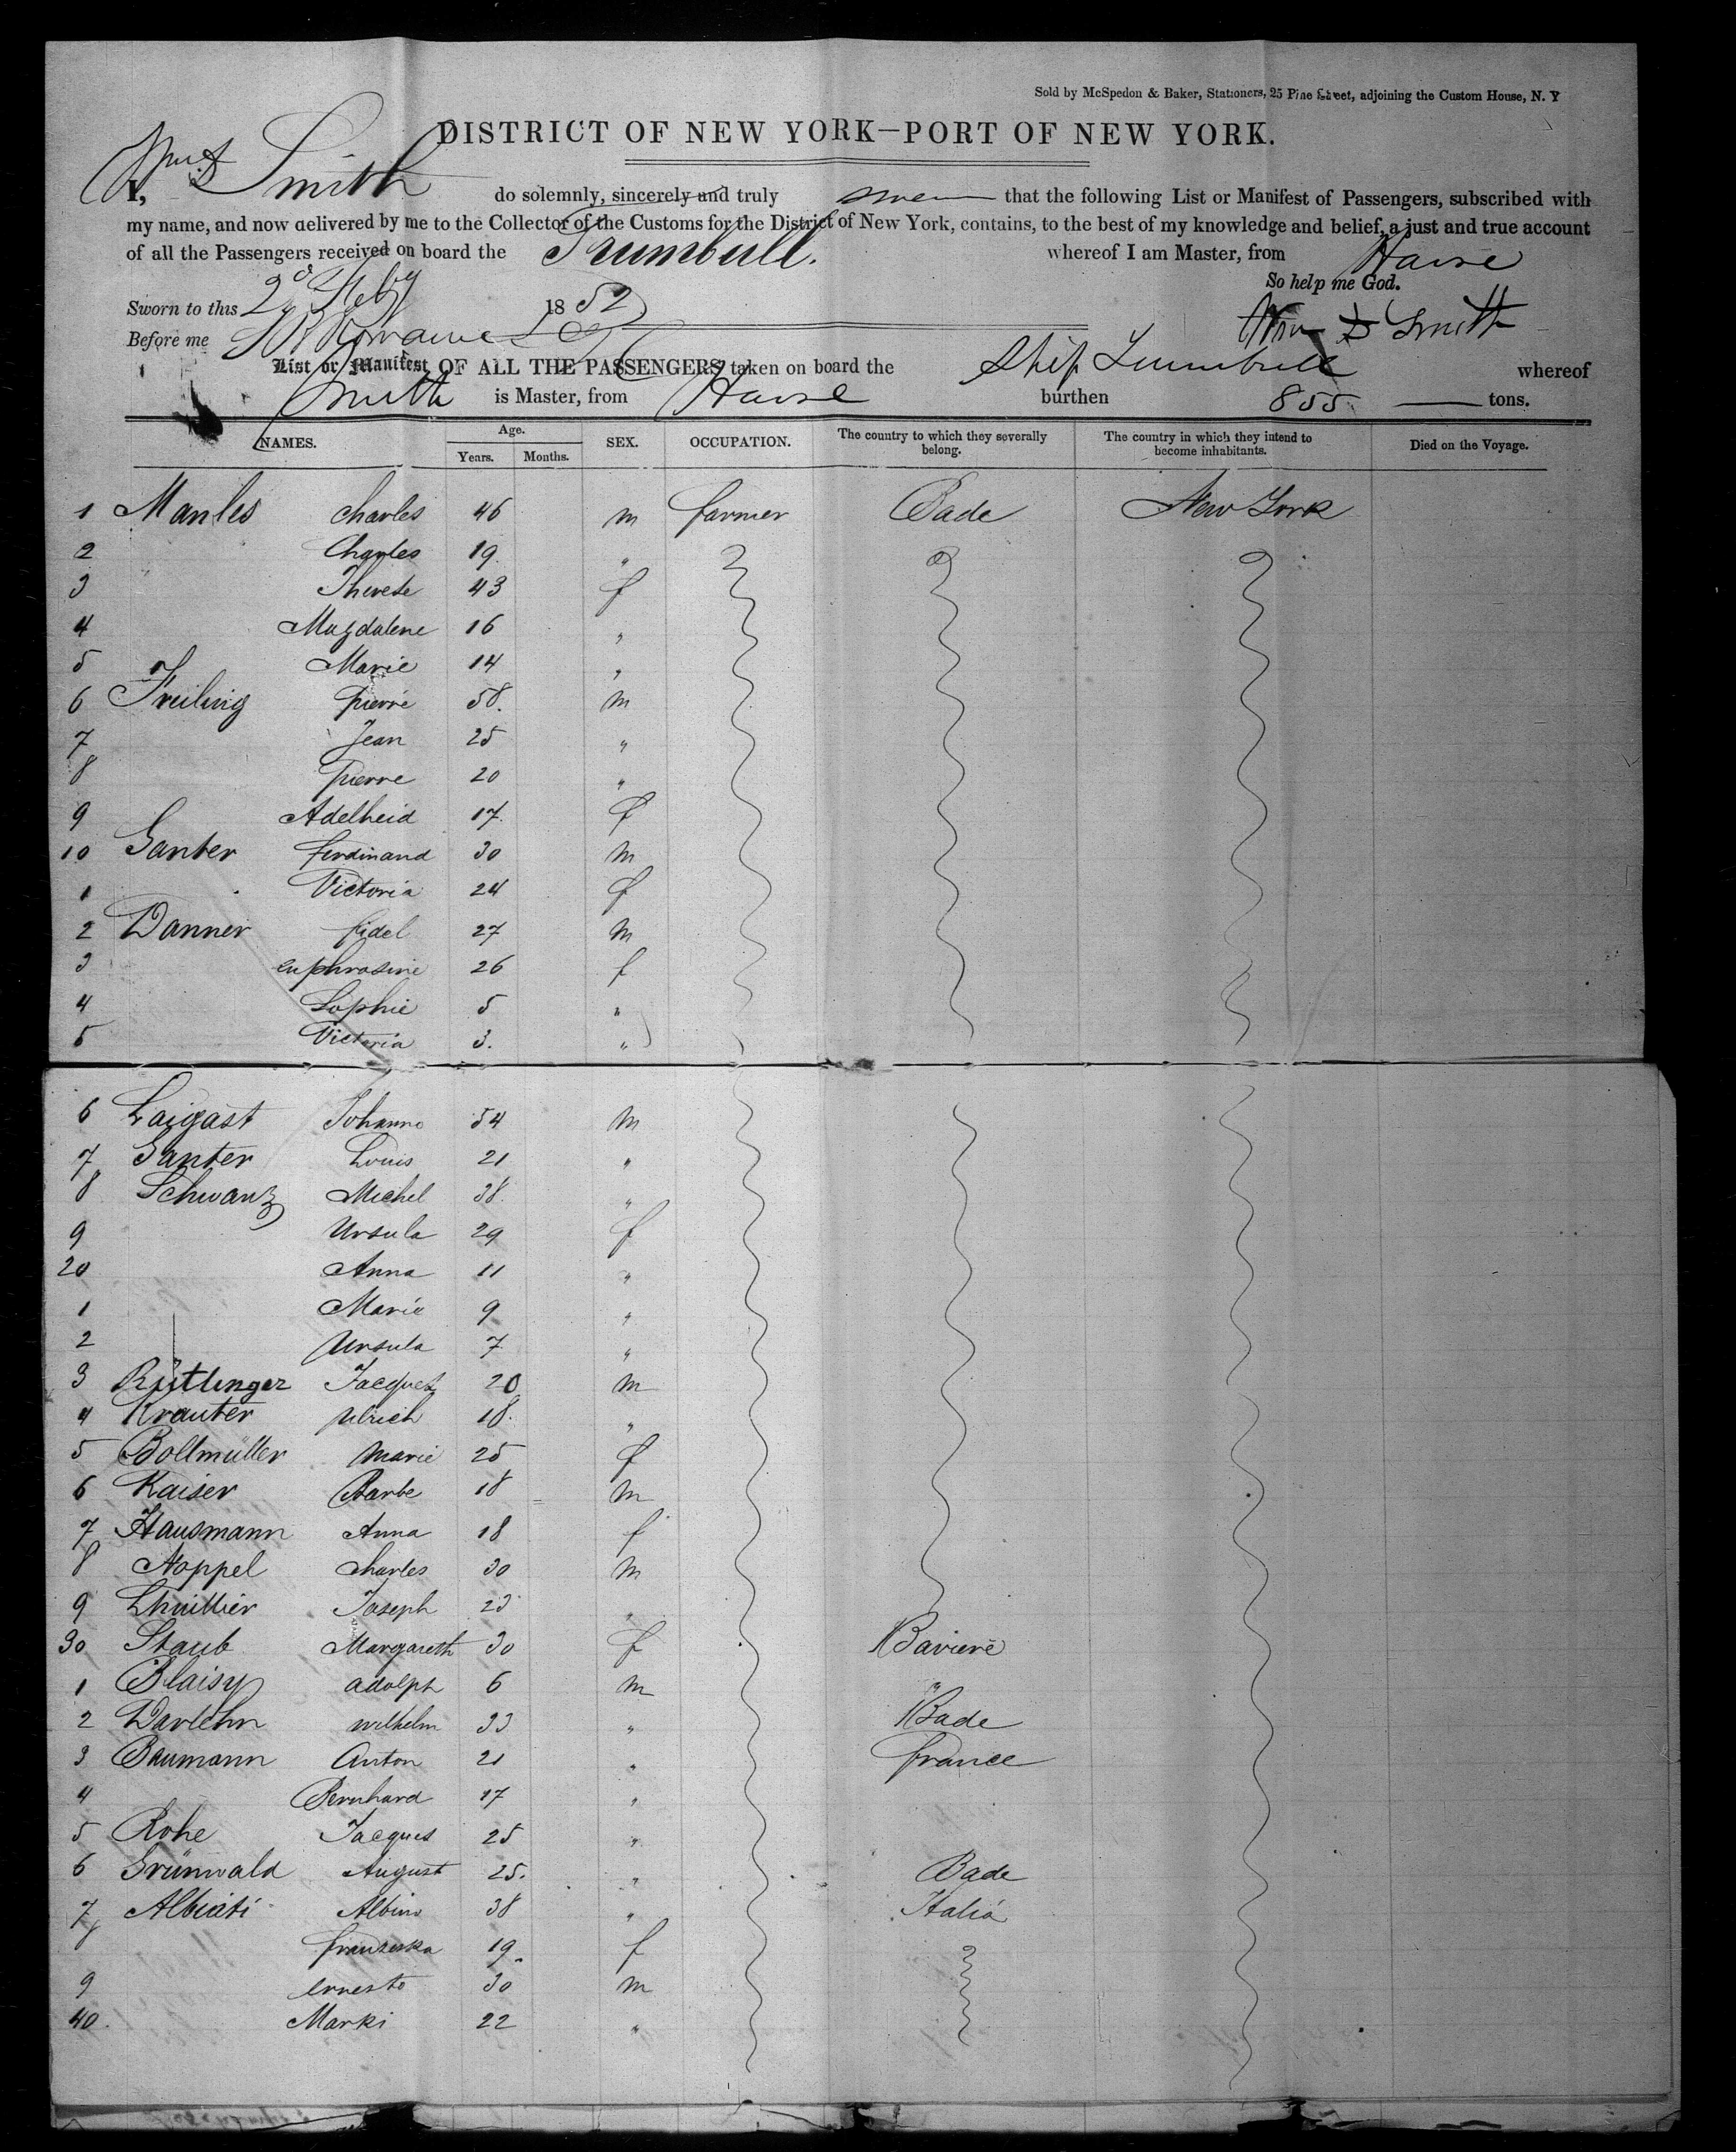 Sold by McSpedon & Baker, Stationers, 25 Pine Street, adjoining the Custom House, N. Y
DISTRICT OF NEW YORK—PORT OF NEW YORK.
I, Smith do solemnly, sincerely and truly swear that the following List or Manifest of Passengers, subscribed with
my name, and now delivered by me to the Collector of the Customs for the District of New York, contains, to the best of my knowledge and belief, a just and true account
of all the Passengers received on board the Trumbull. whereof I am Master, from Havre
So help me God.
Sworn to this 2d Feby 1852
Before me
Wm Smith
List or Manifest OF ALL THE PASSENGERS taken on board the Ship Trumbull whereof
Smith is Master, from Havre burthen 855 tons.
NAMES. Age. Years. Months. SEX. OCCUPATION. The country to which they severally belong. The country in which they intend to become inhabitants. Died on the Voyage.
1 Manles Charles 46 m farmer Bade New York
2 Charles 19 "
3 Therese 43 f
4 Magdalene 16 "
5 Marie 14 "
6 Freiling Pierre 58. m
7 Jean 25 "
8 Pierre 20 "
9 Adelheid 17. f
10 Ganter ferdinand 30 m
1 Victoria 24 f
2 Danner fidel 27 m
3 euphrosine 26 f
4 Sophie 5 "
5 Victoria 3. "
6 Laigast Johann 54 m
7 Ganter Louis 21 "
8 Schwanz Michel 38. "
9 Ursula 29 f
20 Anna 11 "
1 Marie 9 "
2 Ursula 7 "
3 Rütlinger Jacques 20 m
4 Krauter Ulrich 18. "
5 Bollmüller Marie 25 f
6 Kaiser Barbe 18 m
7 Hausmann Anna 18 f
8 Noppel Charles 30 m
9 Lhuillier Joseph 23 "
30 Staub Margareth 30 f Baviere
1 Blaisy adolph 6 m "
2 Warlehn wilhelm 33 " Bade
3 Baumann Anton 21 " france
4 Bernhard 17 "
5 Rohe Jacques 25 "
6 Grünwald August 25. " Bade
7 Albiati Albino 38 " Italia
8 franziska 19. f
9 ernesto 30 m
40. Marki 22 "